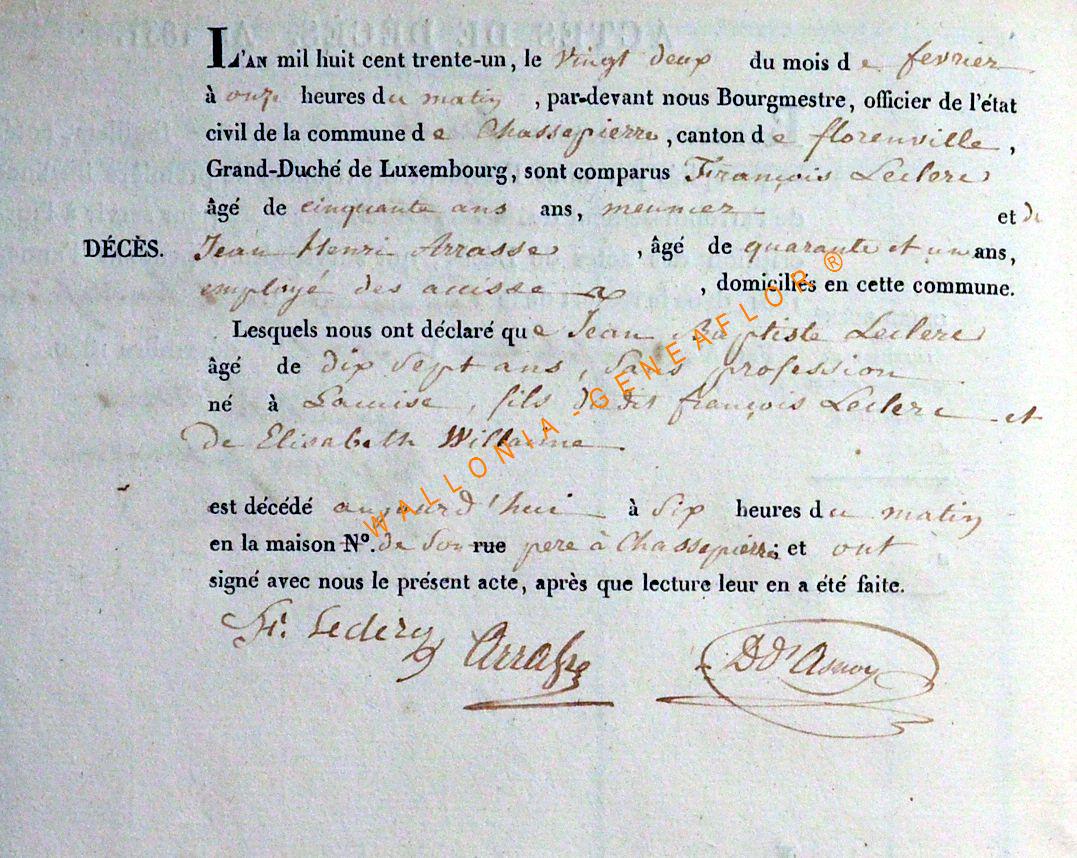 L'AN mil huit cent trente-un, le vingt deux du mois de fevrier
à onze heures du matin, par-devant nous Bourgmestre, officier de l'état
civil de la commune de Chassepierre, canton de florenville,
Grand-Duché de Luxembourg, sont comparus François Leclere
âgé de cinquante ans ans, meunier et de
DÉCÈS. Jean Henri Arrasse, âgé de quarante et un ans,
employé des accisse, domiciliés en cette commune.
Lesquels nous ont déclaré que Jean Baptiste Leclere
âgé de dix sept ans, sans profession
né à Lacuise, fils dudit françois Leclere et
de Elisabeth Willaume
est décédé aujourd'hui à six heures du matin
en la maison N°. de son rue pere à Chassepierre; et ont
signé avec nous le présent acte, après que lecture leur en a été faite.
fr. Leclere Arrasse D d'Asnoy
WALLONIA-GENEAFLOR®